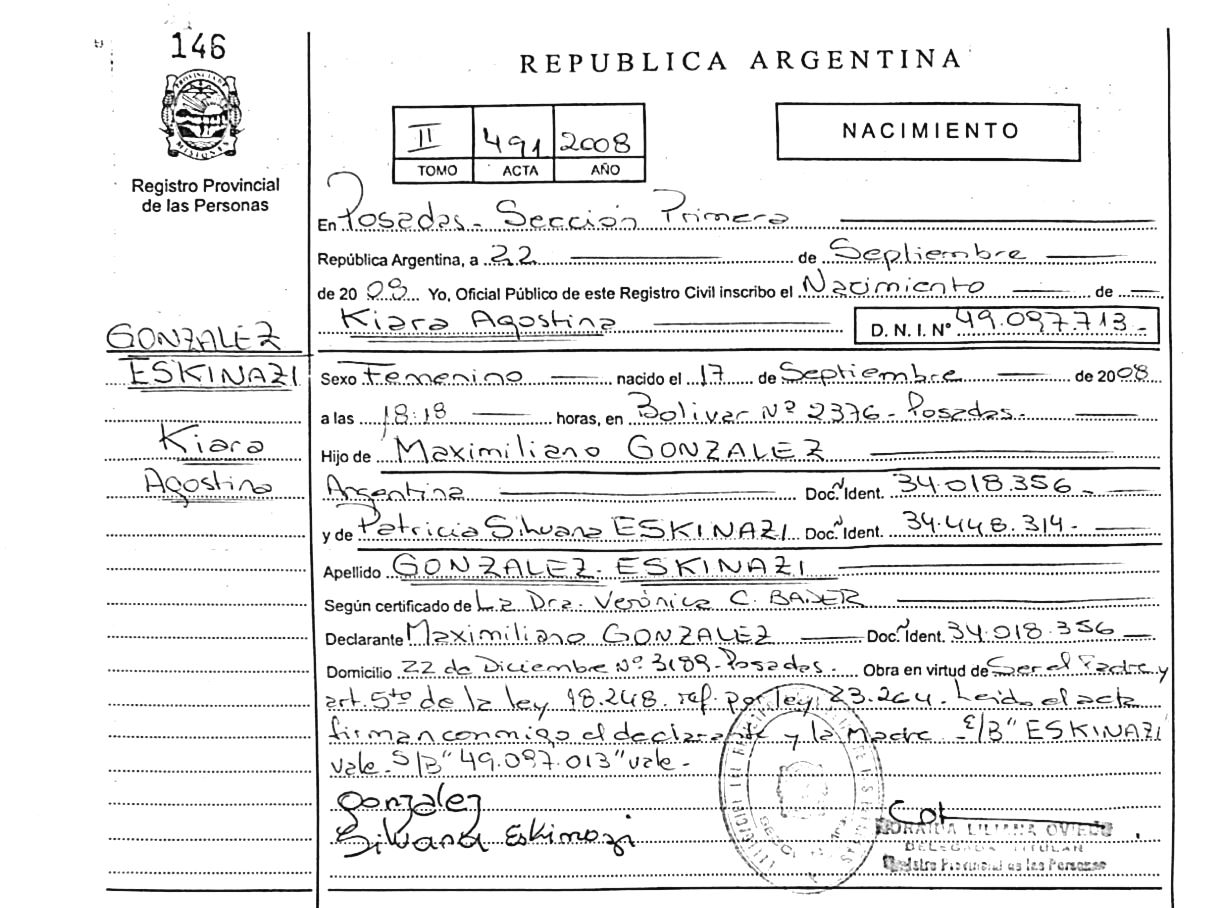 146
REPUBLICA ARGENTINA
PROVINCIA DE MISIONES
Registro Provincial
de las Personas
II 491 2008
TOMO ACTA AÑO
NACIMIENTO
En Posadas - Sección Primera
República Argentina, a 22 de Septiembre
de 2008 Yo, Oficial Público de este Registro Civil inscribo el Nacimiento de
Kiara Agostina D. N. I. Nº 49.097.713-
GONZALEZ
ESKINAZI
Kiara
Agostina
Sexo Femenino nacido el 17 de Septiembre de 2008
a las 18:18 horas, en Bolivar Nº 2376 - Posadas -
Hijo de Maximiliano GONZALEZ
Argentina Doc. Ident. 34.018.356 -
y de Patricia Silvana ESKINAZI Doc. Ident. 34.448.314 -
Apellido GONZALEZ - ESKINAZI
Según certificado de La Dra. Verónica C. BADER
Declarante Maximiliano GONZALEZ Doc. Ident. 34.018.356
Domicilio 22 de Diciembre Nº 3189 - Posadas - Obra en virtud de Ser el Padre y
art. 5to de la ley 18.248. ref. por ley 23.264. Leido el acta
firman conmigo el declarante y la Madre - E/B "ESKINAZI
vale - S/B "49.097.013" vale -
Gonzalez
Silvana Eskinazi
LILIANA OVIEDO
DELEGADA TITULAR
Registro Provincial de las Personas